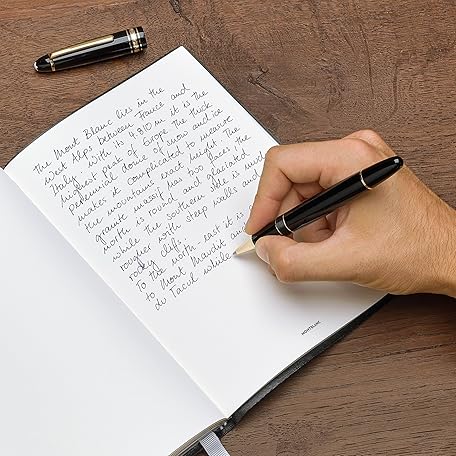 The Mont Blanc lies in the
West Alps between France and
Italy, with its 4'810 m it is the
highest peak of Europe. The thick
perennial dome of snow and ice
makes it complicated to measure
the mountains exact height. The
granite massif has two faces: the
north is round and glaciated
while the southern side is much
rougher with steep walls and
rocky cliffs.
To the north-east it is
to Mont Maudit and
du Tacul while
MONTBLANC